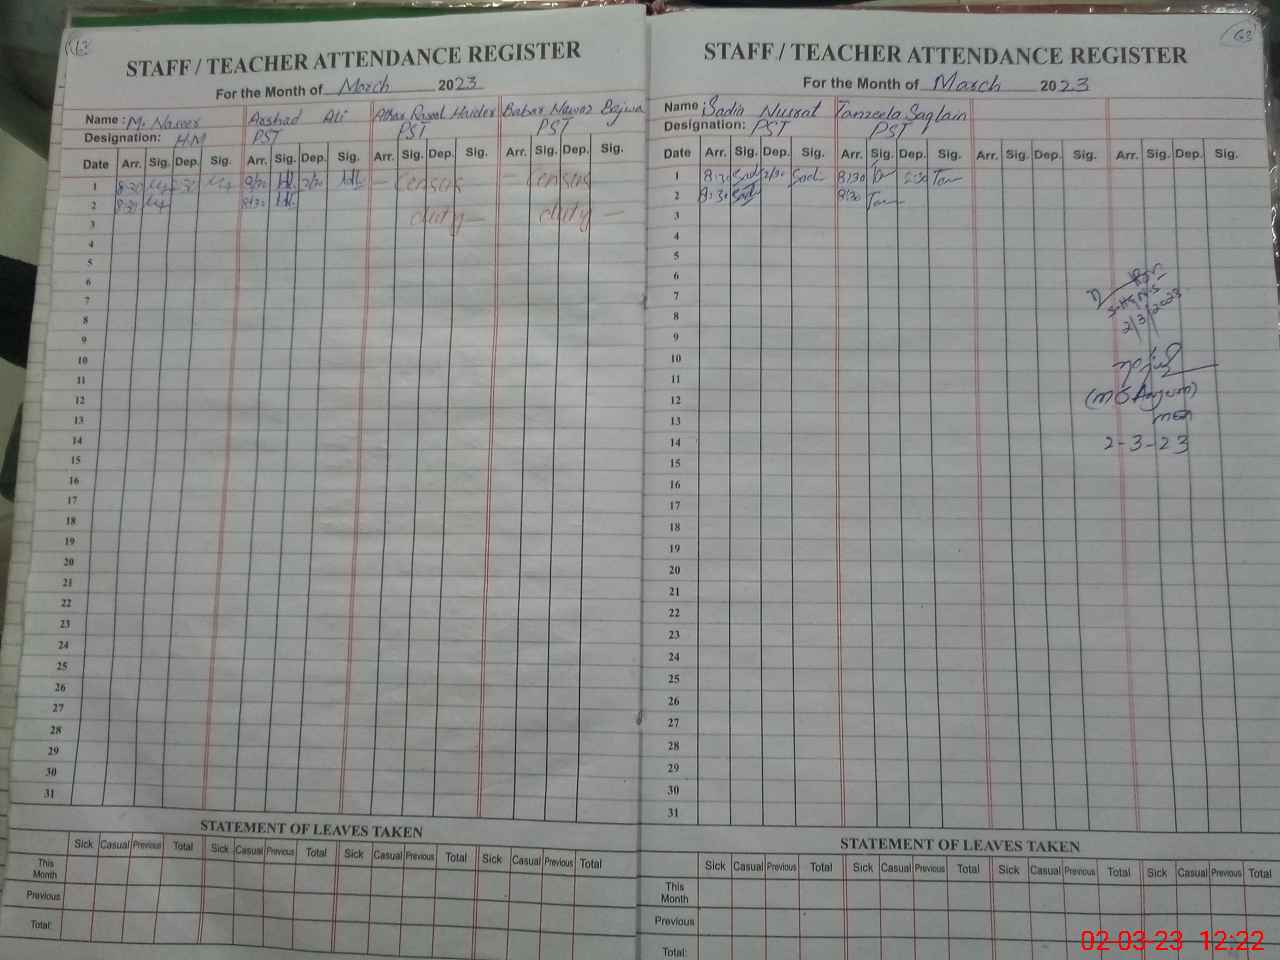 63
STAFF / TEACHER ATTENDANCE REGISTER
For the Month of March 2023
Name : M. Naseer Arshad Ali Athar Rasool Haider Babar Nawaz Bajwa
Designation: HM PST PST PST
Date Arr. Sig. Dep. Sig. Arr. Sig. Dep. Sig. Arr. Sig. Dep. Sig. Arr. Sig. Dep. Sig.
1 8:30 8/30 2/30 — Census — Census
2 8:30 8/30
3 duty — duty —
4
5
6
7
8
9
10
11
12
13
14
15
16
17
18
19
20
21
22
23
24
25
26
27
28
29
30
31
STATEMENT OF LEAVES TAKEN
Sick Casual Previous Total Sick Casual Previous Total Sick Casual Previous Total Sick Casual Previous Total
This Month
Previous
Total:
63
STAFF / TEACHER ATTENDANCE REGISTER
For the Month of March 2023
Name : Sadia Nusrat Tanzeela Saqlain
Designation: PST PST
Date Arr. Sig. Dep. Sig. Arr. Sig. Dep. Sig. Arr. Sig. Dep. Sig. Arr. Sig. Dep. Sig.
1 8:30 Sad 2/30 Sad 8:30 Tan 2:30 Tan
2 8:30 Sad 8:30 Tan
3
4
5
6
7
8
9
10
11
12
13
14
15
16
17
18
19
20
21
22
23
24
25
26
27
28
29
30
31
2/3/2023
(M S Anjum)
MEA
2-3-23
STATEMENT OF LEAVES TAKEN
Sick Casual Previous Total Sick Casual Previous Total Sick Casual Previous Total Sick Casual Previous Total
This Month
Previous
Total:
02-03-23 12:22